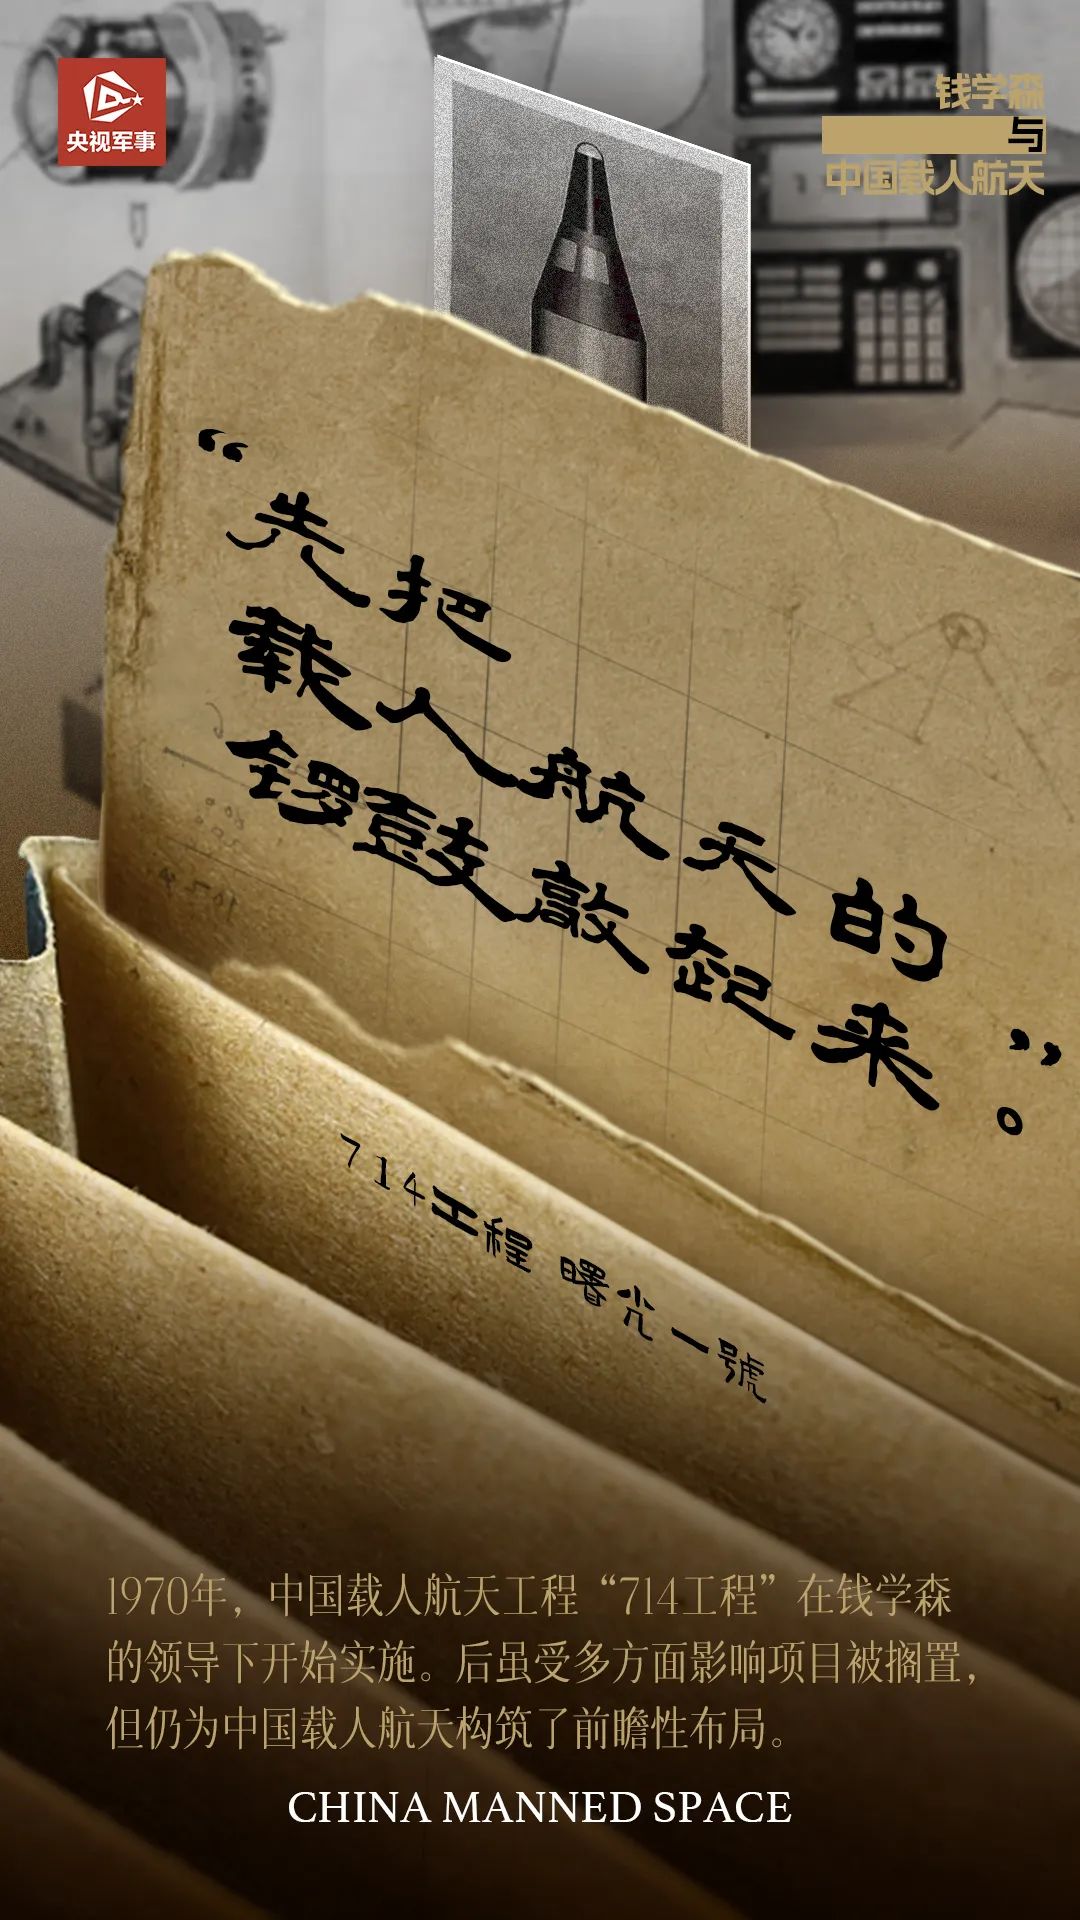 央视军事
钱学森
与
中国载人航天
“先把
载人航天的
锣鼓敲起来”。
714工程 曙光一號
1970年，中国载人航天工程“714工程”在钱学森
的领导下开始实施。后虽受多方面影响项目被搁置，
但仍为中国载人航天构筑了前瞻性布局。
CHINA MANNED SPACE